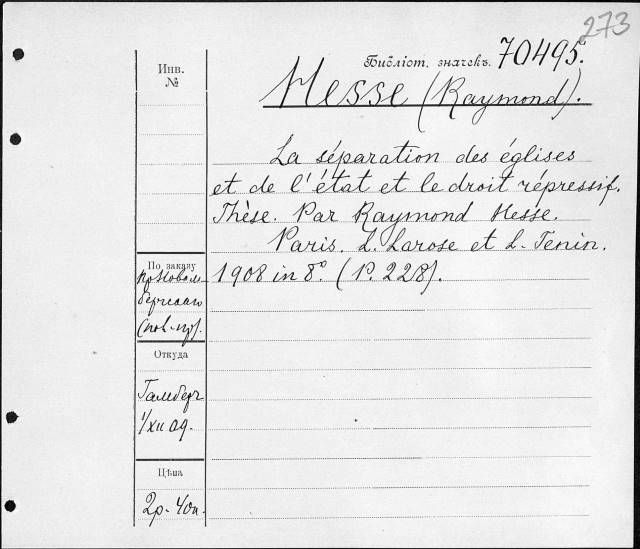 273
Библіот. значекъ. 70495.
Инв.
№
Hesse (Raymond).
La séparation des églises
et de l'état et le droit répressif.
Thèse. Par Raymond Hesse.
Paris. L. Larose et L. Tenin.
1908 in 8.° (P. 228).
По заказу
Откуда
1/XII 09.
Цѣна
2р. 40к.